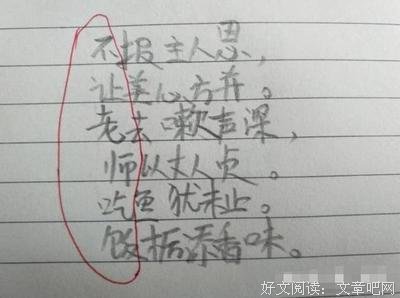 不报主人恩，
让美心方弃。
老去嗽声深，
师以丈人贞。
吃鱼犹未止。
饭后添香味。
好文阅读：文章吧网